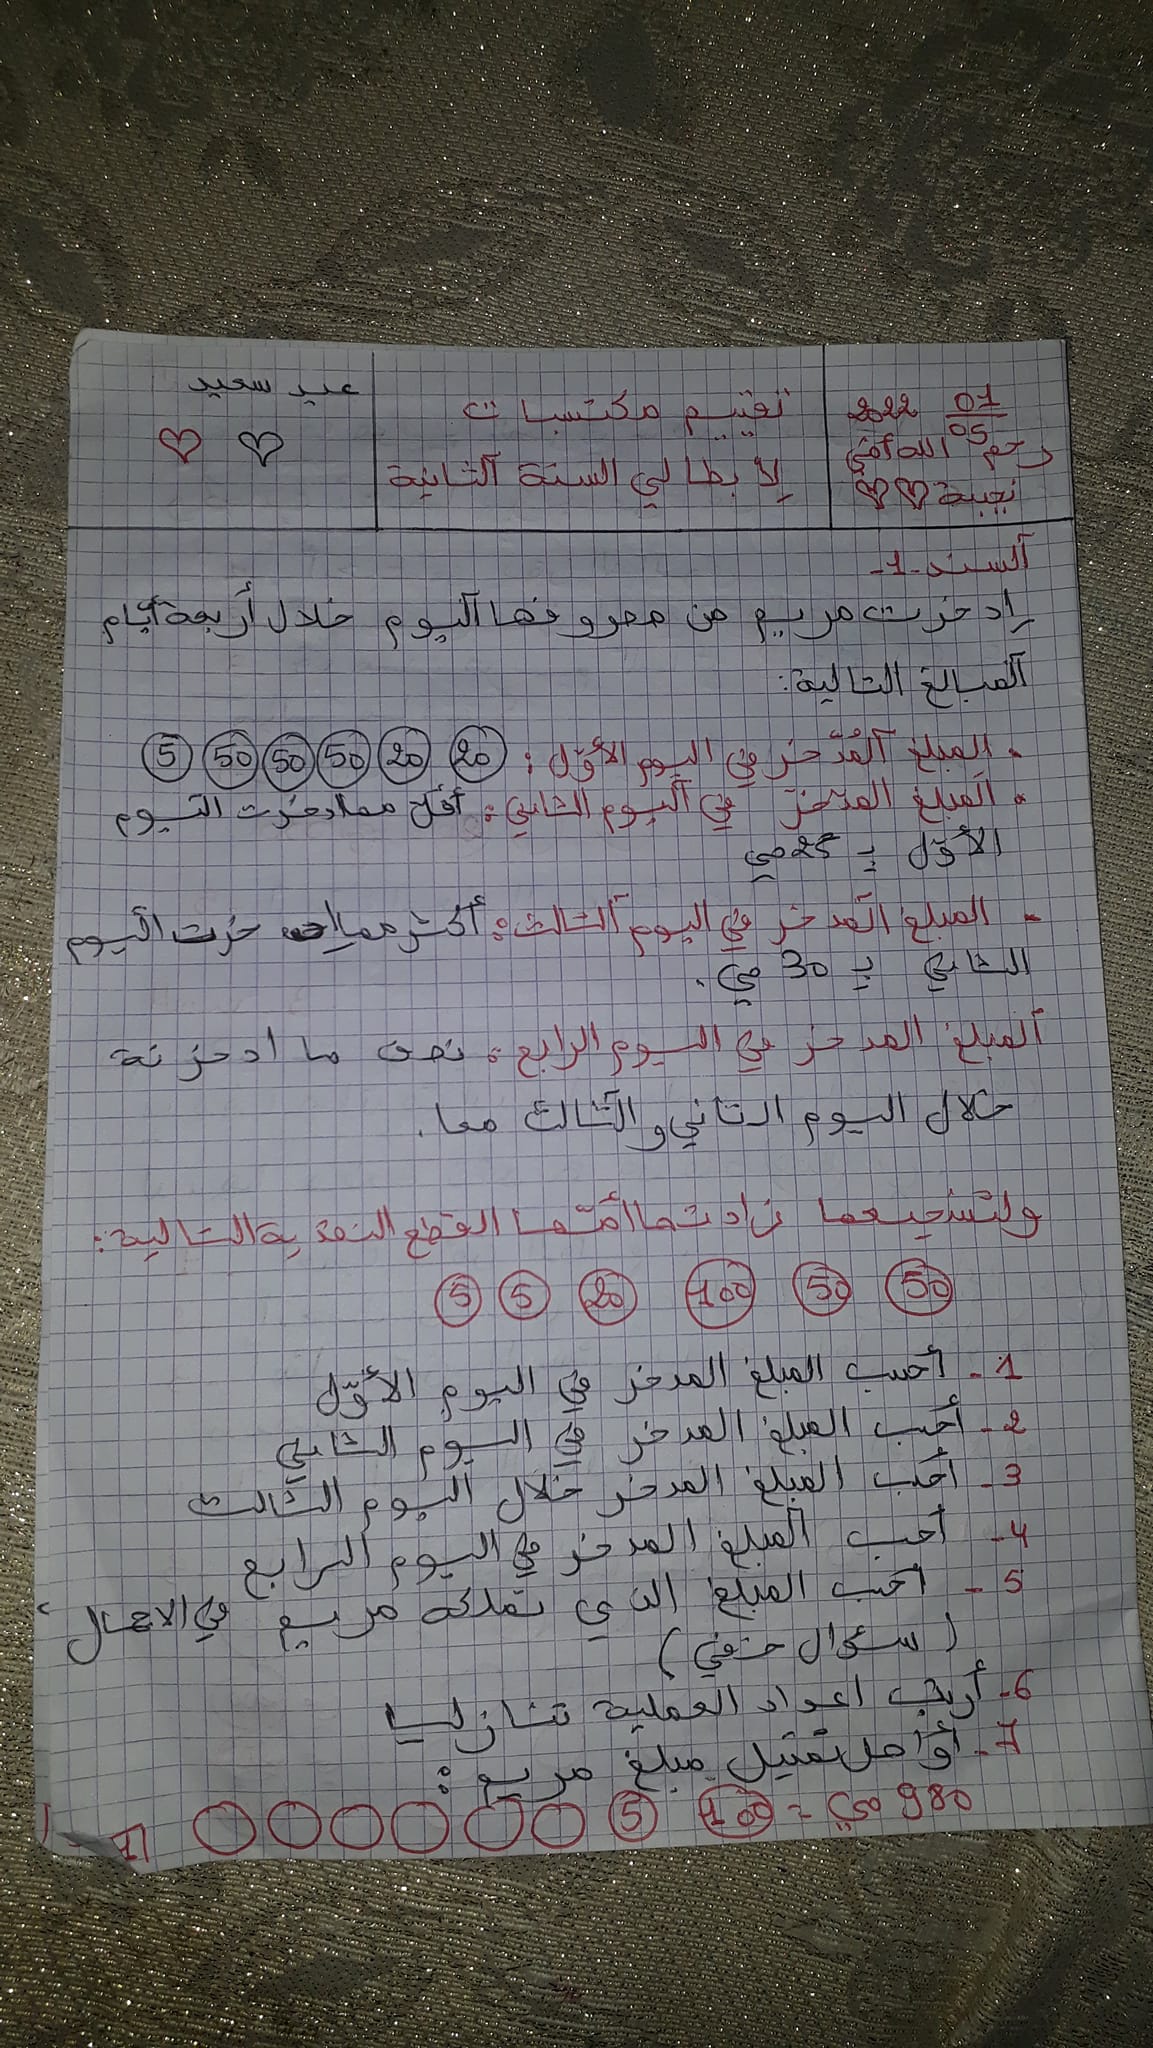 01/05 2022
رحم الله أمي
نجيبة
تقييم مكتسبات
لأبطالي السنة الثانية
عيد سعيد
السند -1-
إدخرت مريم من مصروفها اليوم خلال أربعة أيام
المبالغ التالية:
. المبلغ المُدّخر في اليوم الأوّل : 20 20 50 50 50 5
. المبلغ المدخر في اليوم الثاني : أقل مما دخرت اليوم
الأوّل بـ 25 مي
- المبلغ المدخر في اليوم الثالث : أكثر مما خرت اليوم
الثاني بـ 30 مي .
المبلغ المدخر في اليوم الرابع : نصف ما ادخرته
خلال اليوم الثاني والثالث معا .
ولتشجيعها زادتها أمّها القطع النقدية التالية :
50 50 100 20 5 5
1 - أحسب المبلغ المدخر في اليوم الأوّل
2 - أحسب المبلغ المدخر في اليوم الثاني
3 - أحسب المبلغ المدخر خلال اليوم الثالث
4 - أحسب المبلغ المدخر في اليوم الرابع
5 - أحسب المبلغ الذي تملكه مريم في الاجمال
( سؤال خفي )
6 - أرتب اعداد العملية تنازليا
7 - أواصل تمثيل مبلغ مريم :
980 مي = 100 5